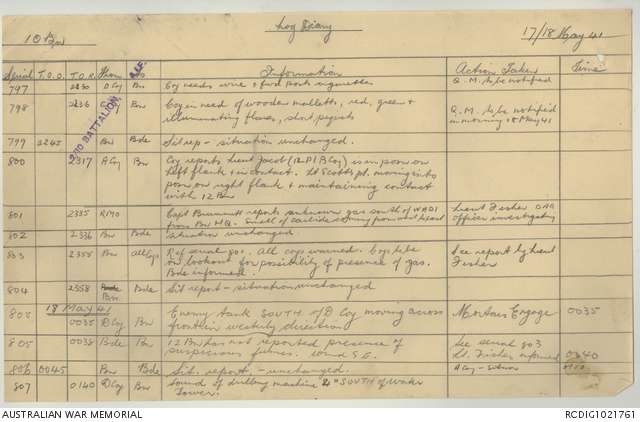 Log Diary
10 Bn
17/18 May 41
Serial T.O.O. T.O.R. From To Information Action Taken Time
2/10 BATTALION, A.I.F.
797 2230 D Coy Bn Coy needs wire + fwd posts cigarettes Q.M. to be notified
798 2236 Coy Bn Coy in need of wooden malletts, red, green + Q.M. to be notified
illuminating flares, short pegs in morning 18 May 41
799 2245 Bn Bde Sit rep - situation unchanged.
800 2317 A Coy Bn Coy reports Lieut Jacob (12 Pl B Coy) is in posn on
left flank + in contact. Lt Scotts pl. moving into
posn on right flank + maintaining contact
with 12 Bn
801 2335 R.M.O Bn Capt reports unknown gas south of WADI Lieut Fisher GAS
from Bn HQ. Smell of carbide coming from west officer investigating
802 2336 Bn Bde Situation unchanged
803 2355 Bn All Coys Ref serial 801. All coys warned. Coys to be See report by Lieut
on lookout for possibility of presence of gas. Fisher
Bde informed.
804 2358 Bn Bde Sit report - situation unchanged
18 May 41
805 0035 D Coy Bn Enemy tank SOUTH of D Coy moving across Mortars Engage 0035
front in westerly direction
805 0038 Bde Bn 12 Bn has not reported presence of See serial 803
suspicious fumes. wind S.E. Lt. Fisher informed 0040
806 0045 Bn Bde Sit. report, - unchanged. A Coy -
807 0140 D Coy Bn Sound of drilling machine SOUTH of Water
Tower.
AUSTRALIAN WAR MEMORIAL
RCDIG1021761